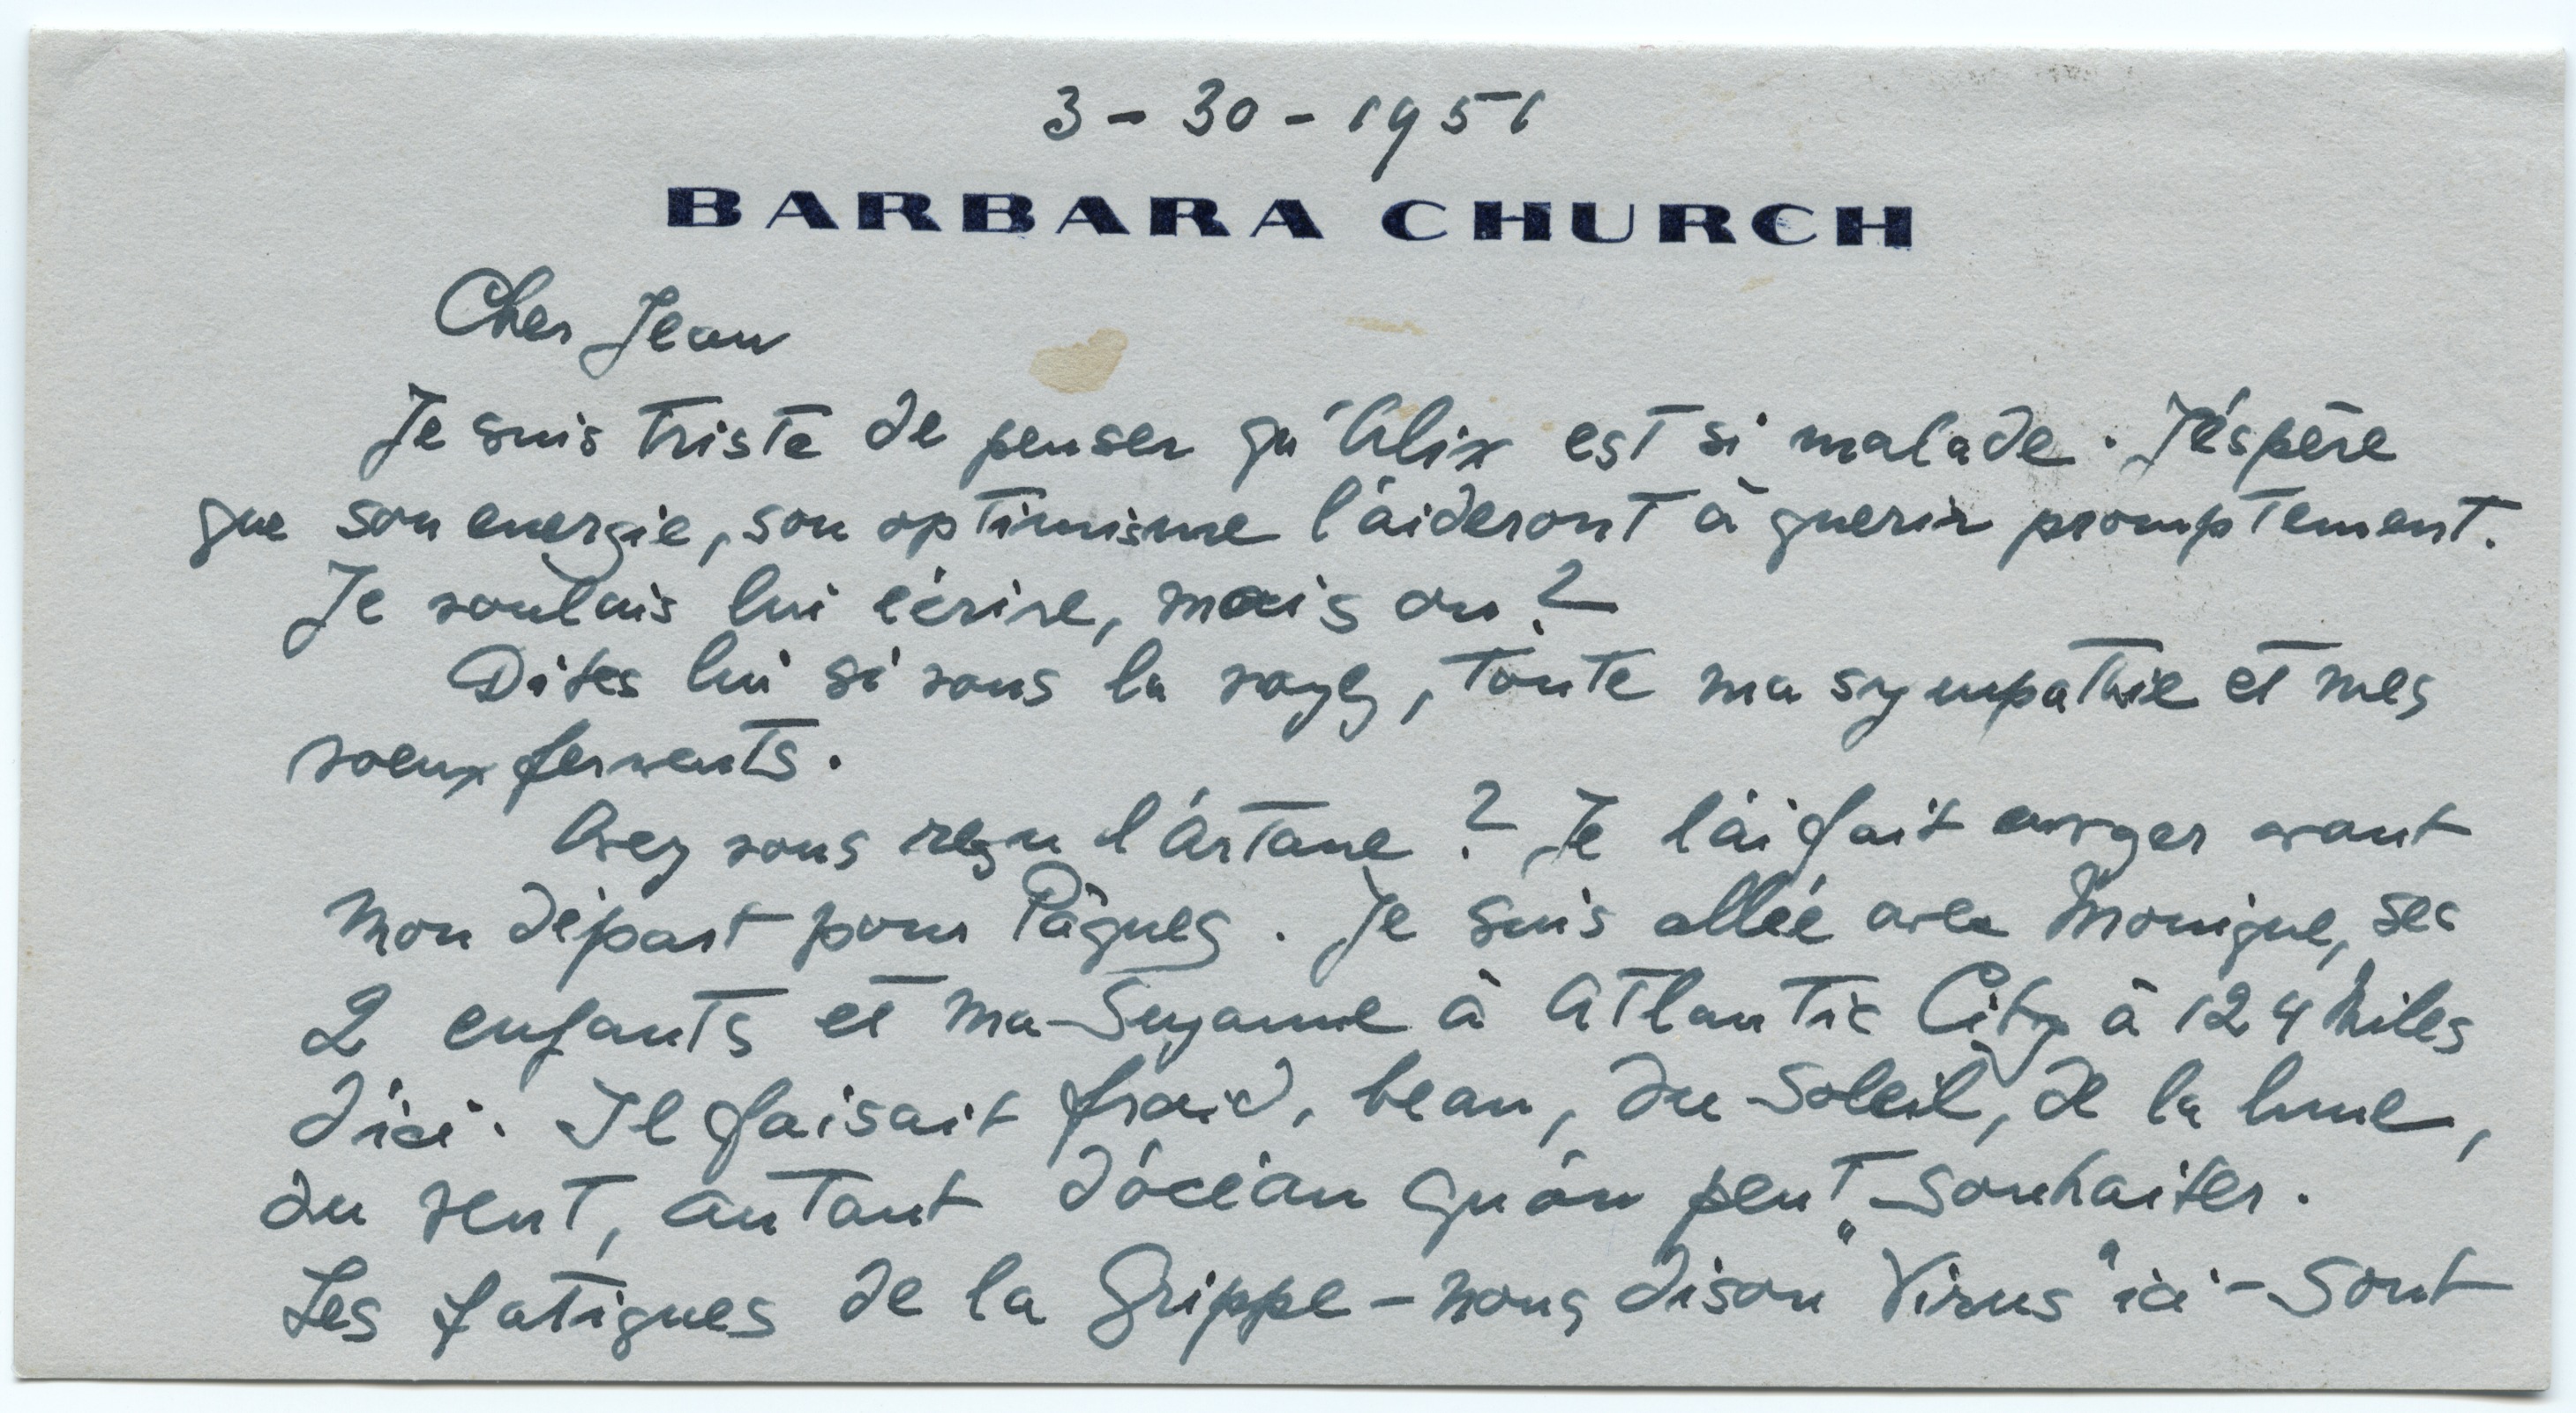 3 - 30 - 1951
BARBARA CHURCH
Cher Jean
Je suis triste de penser qu'Alix est si malade. J'éspère
que son energie, son optimisme l'aideront à guerir promptement.
Je voulais lui écrire, mais ou ?
Dites lui si vous la voyez, toute ma sympathie et mes
voeux fervents.
Avez vous reçu l'Artane ? Je l'ai fait envoyer avant
mon départ pour Pâques. Je suis allée avec Monique, ses
2 enfants et ma Suzanne à Atlantic City à 124 Miles
d'ici. Il faisait froid, beau, du soleil, de la lune,
du vent, autant d'océan qu'on peut souhaiter.
Les fatigues de la Grippe - nous dison "Virus" ici - sont